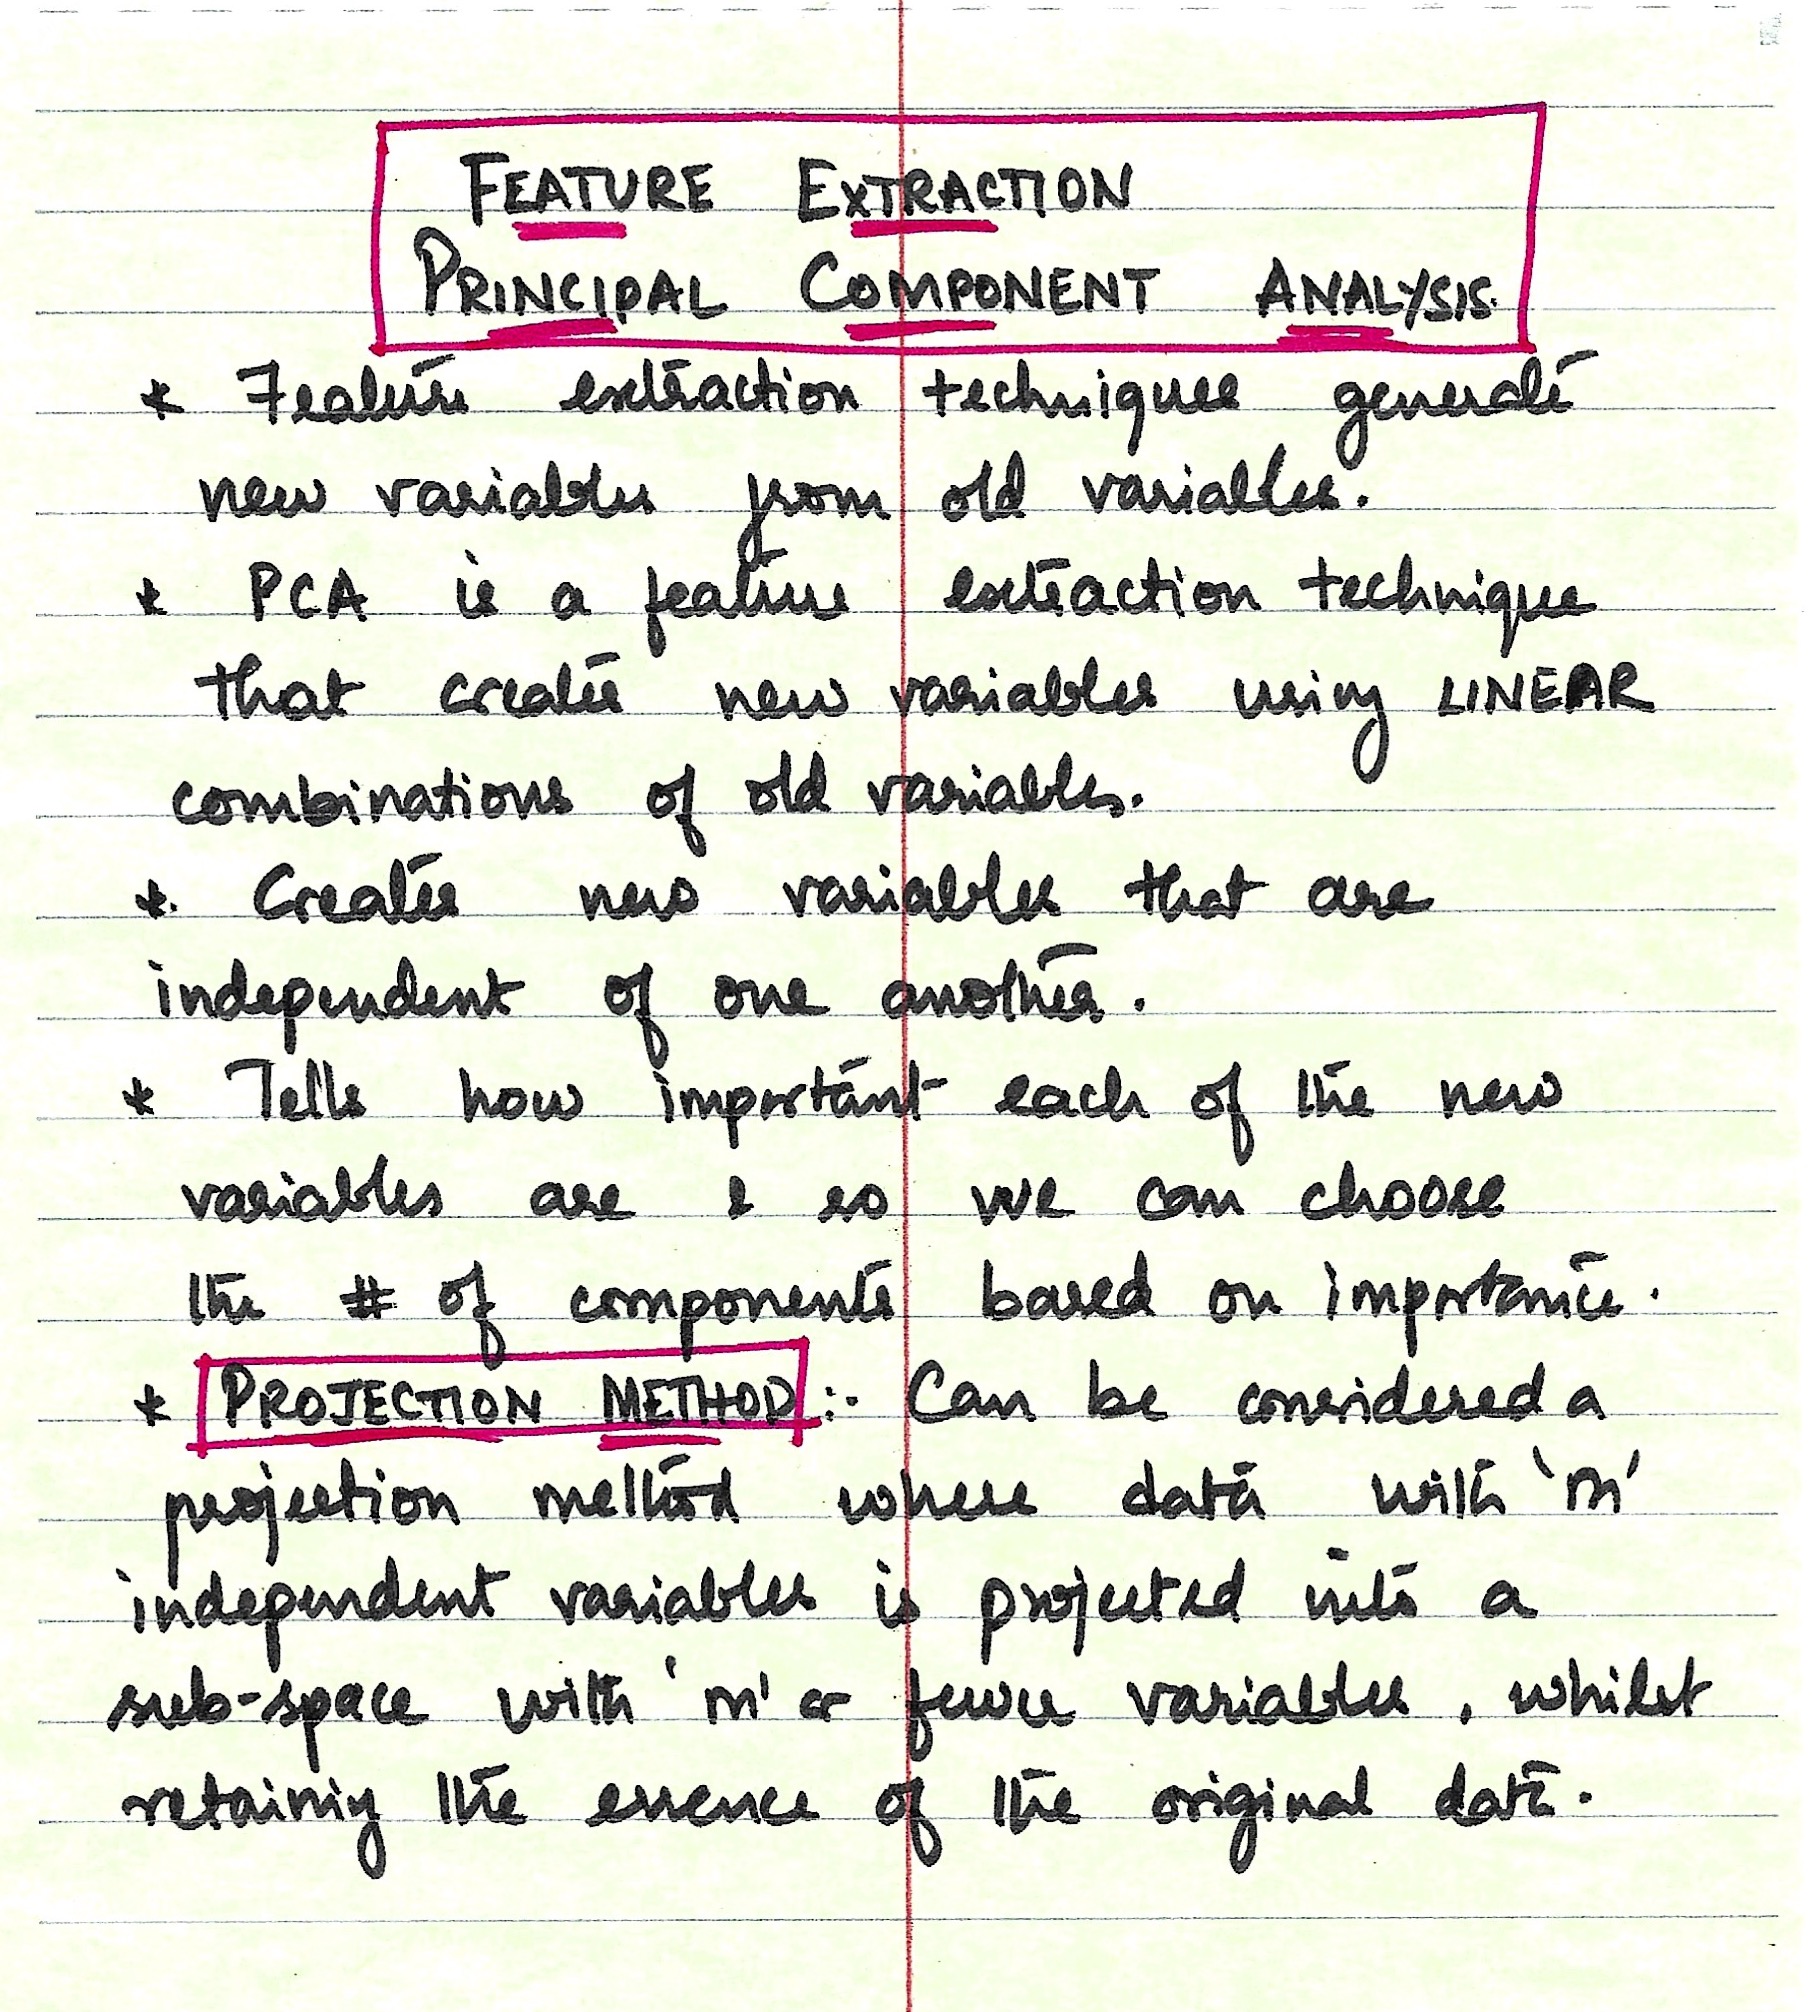 FEATURE EXTRACTION
PRINCIPAL COMPONENT ANALYSIS.
* Feature extraction techniques generate
new variables from old variables.
* PCA is a feature extraction technique
that creates new variables using LINEAR
combinations of old variables.
*. Creates new variables that are
independent of one another.
* Tells how important each of the new
variables are & so we can choose
the # of components based on importance.
* PROJECTION METHOD :- Can be considered a
projection method where data with 'm'
independent variables is projected into a
sub-space with 'm' or fewer variables, whilst
retaining the essence of the original data.